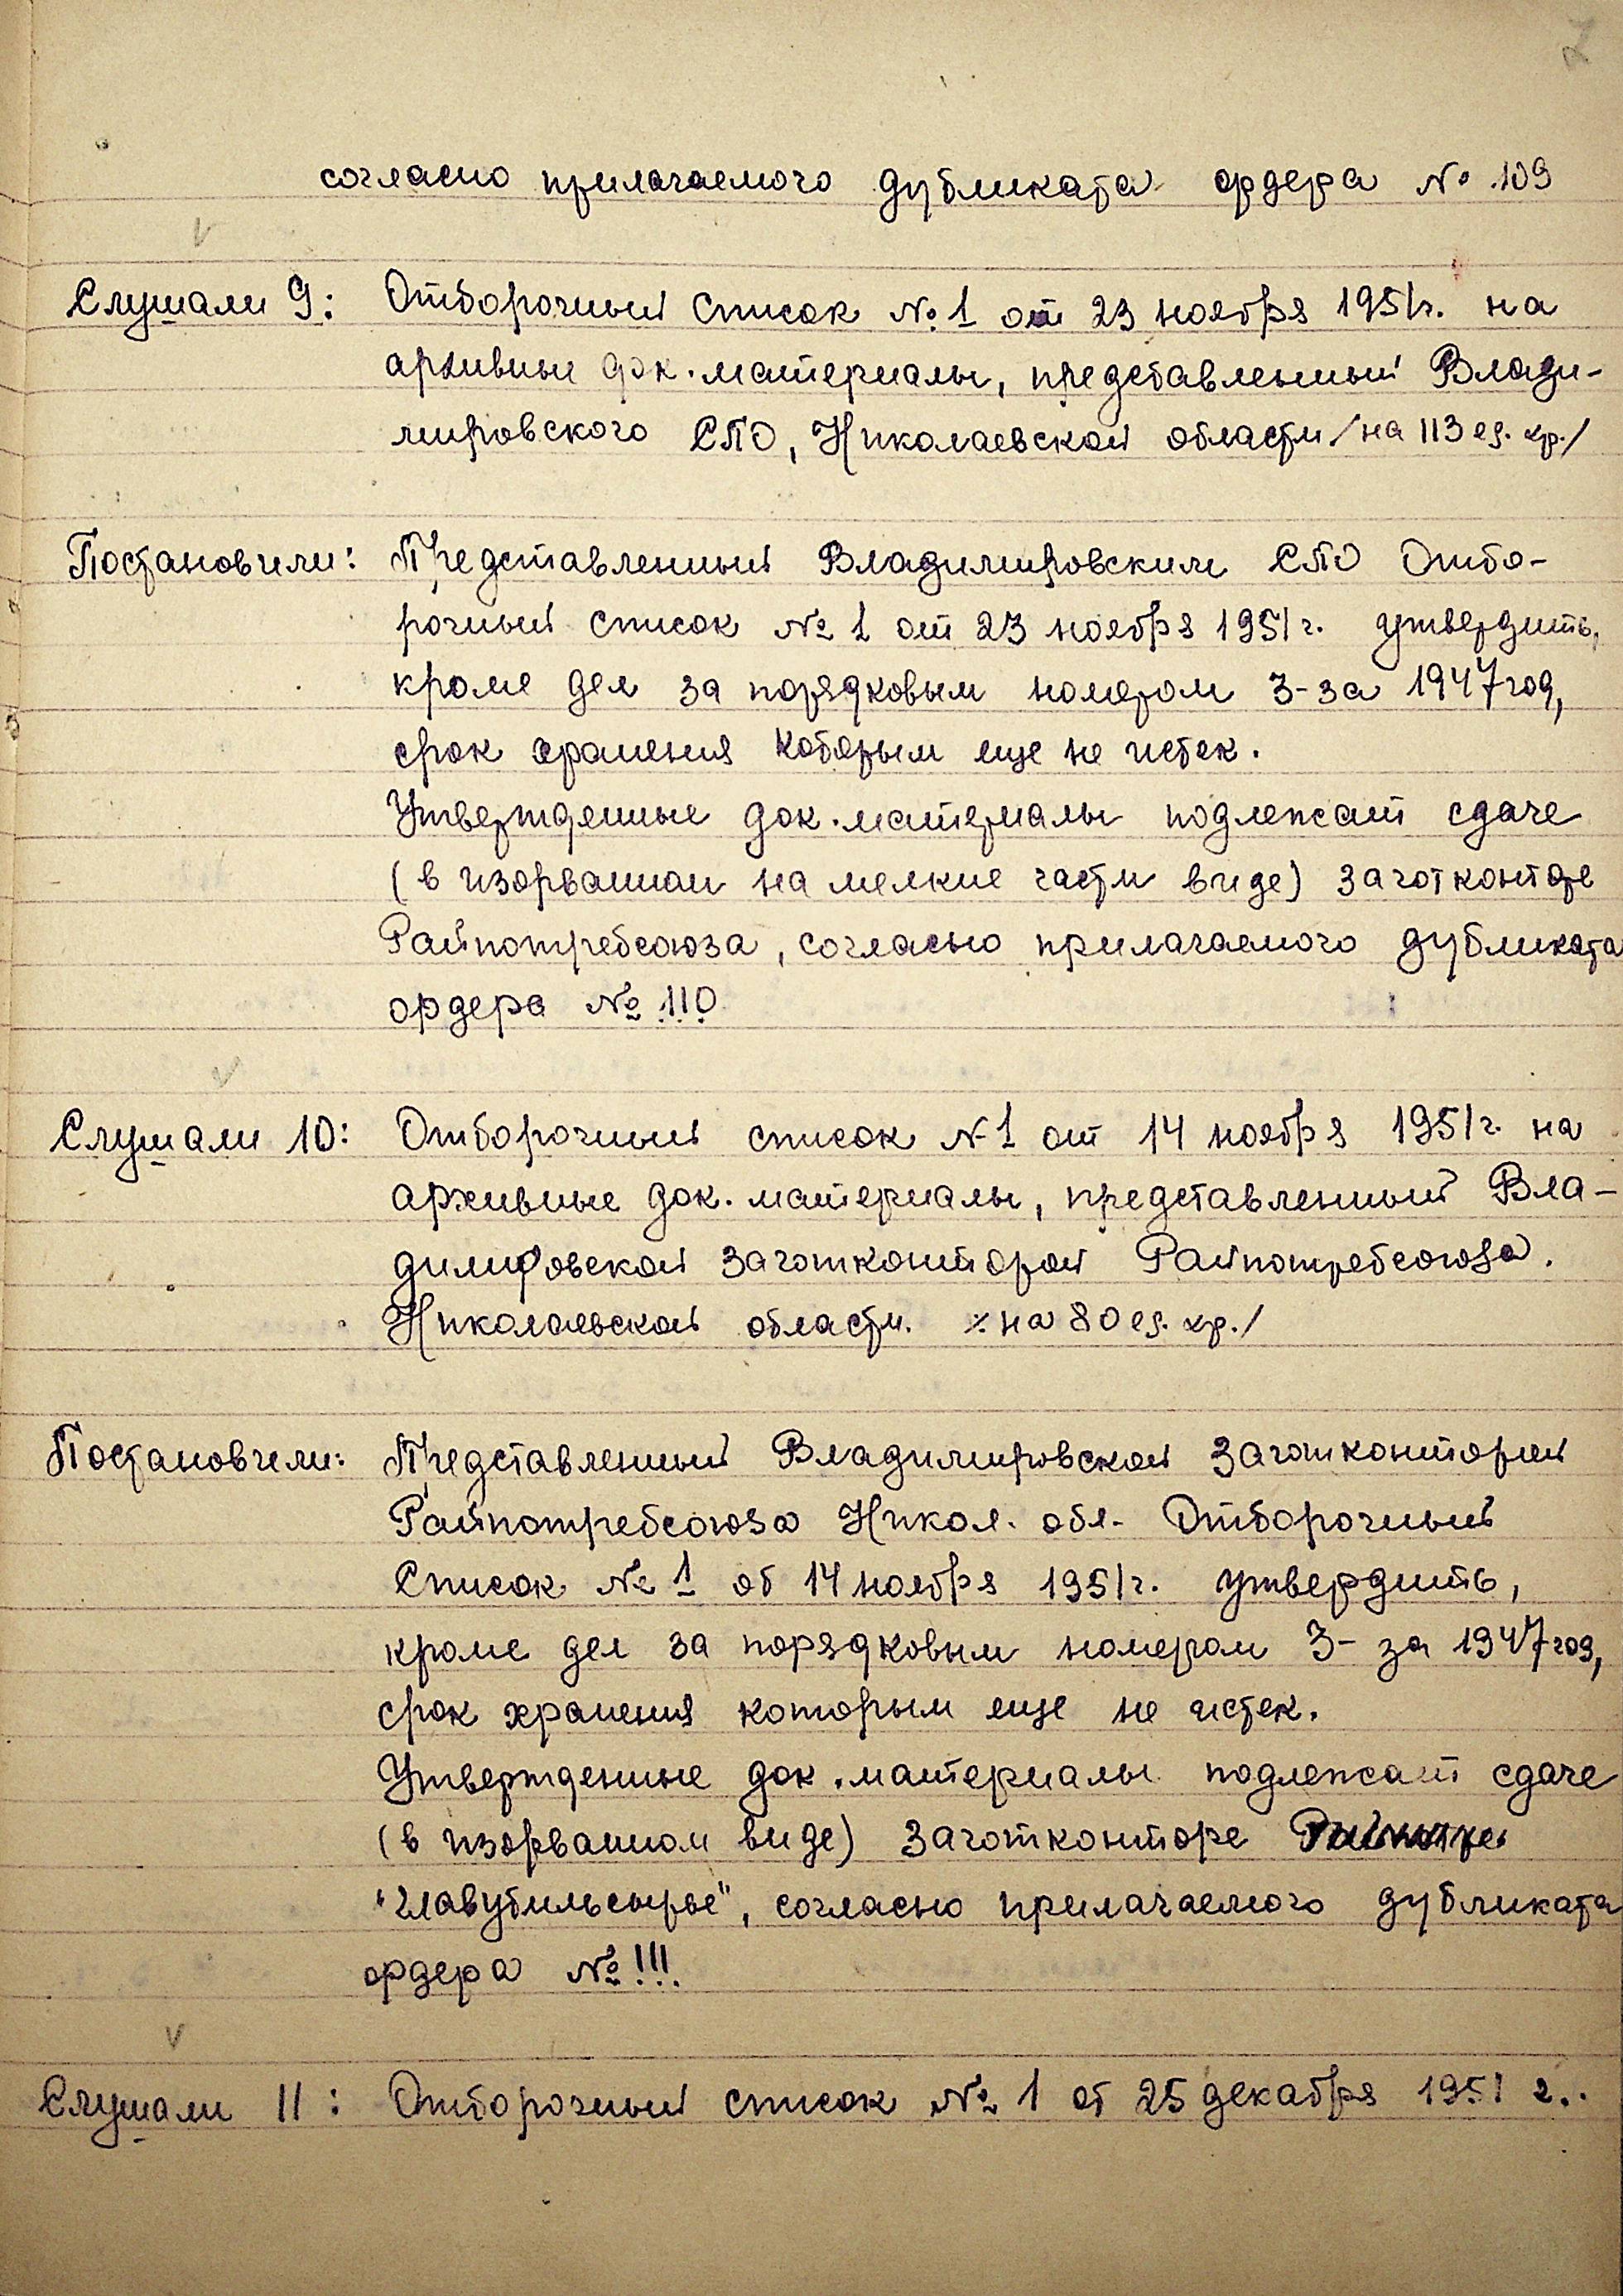 согласно прилагаемого дубликата ордера № 109
Слушали 9: Отборочный список № 1 от 23 ноября 1951г. на
архивные док. материалы, представленный Влади-
мировского СПО, Николаевской области /на 113 ед. хр./
Постановили: Представленный Владимировским СПО Отбо-
рочный список № 1 от 23 ноября 1951г. утвердить,
кроме дел за порядковым номером 3-за 1947 год,
срок хранения которым еще не истек.
Утвержденные док. материалы подлежат сдаче
(в изорванном на мелкие части виде) заготконторе
Райпотребсоюза, согласно прилагаемого дубликата
ордера № 110
Слушали 10: Отборочный список № 1 от 14 ноября 1951г. на
архивные док. материалы, представленный Вла-
димировской заготконторой Райпотребсоюза.
Николаевской области. /на 80 ед. хр./
Постановили: Представленный Владимировской заготконторой
Райпотребсоюза Никол. обл. Отборочный
Список № 1 от 14 ноября 1951г. утвердить,
кроме дел за порядковым номером 3- за 1947 год,
срок хранения которым еще не истек.
Утвержденные док. материалы подлежат сдаче
(в изорванном виде) заготконторе
"Главутильсырье", согласно прилагаемого дубликата
ордера № 111.
Слушали 11: Отборочный список № 1 от 25 декабря 1951 г..